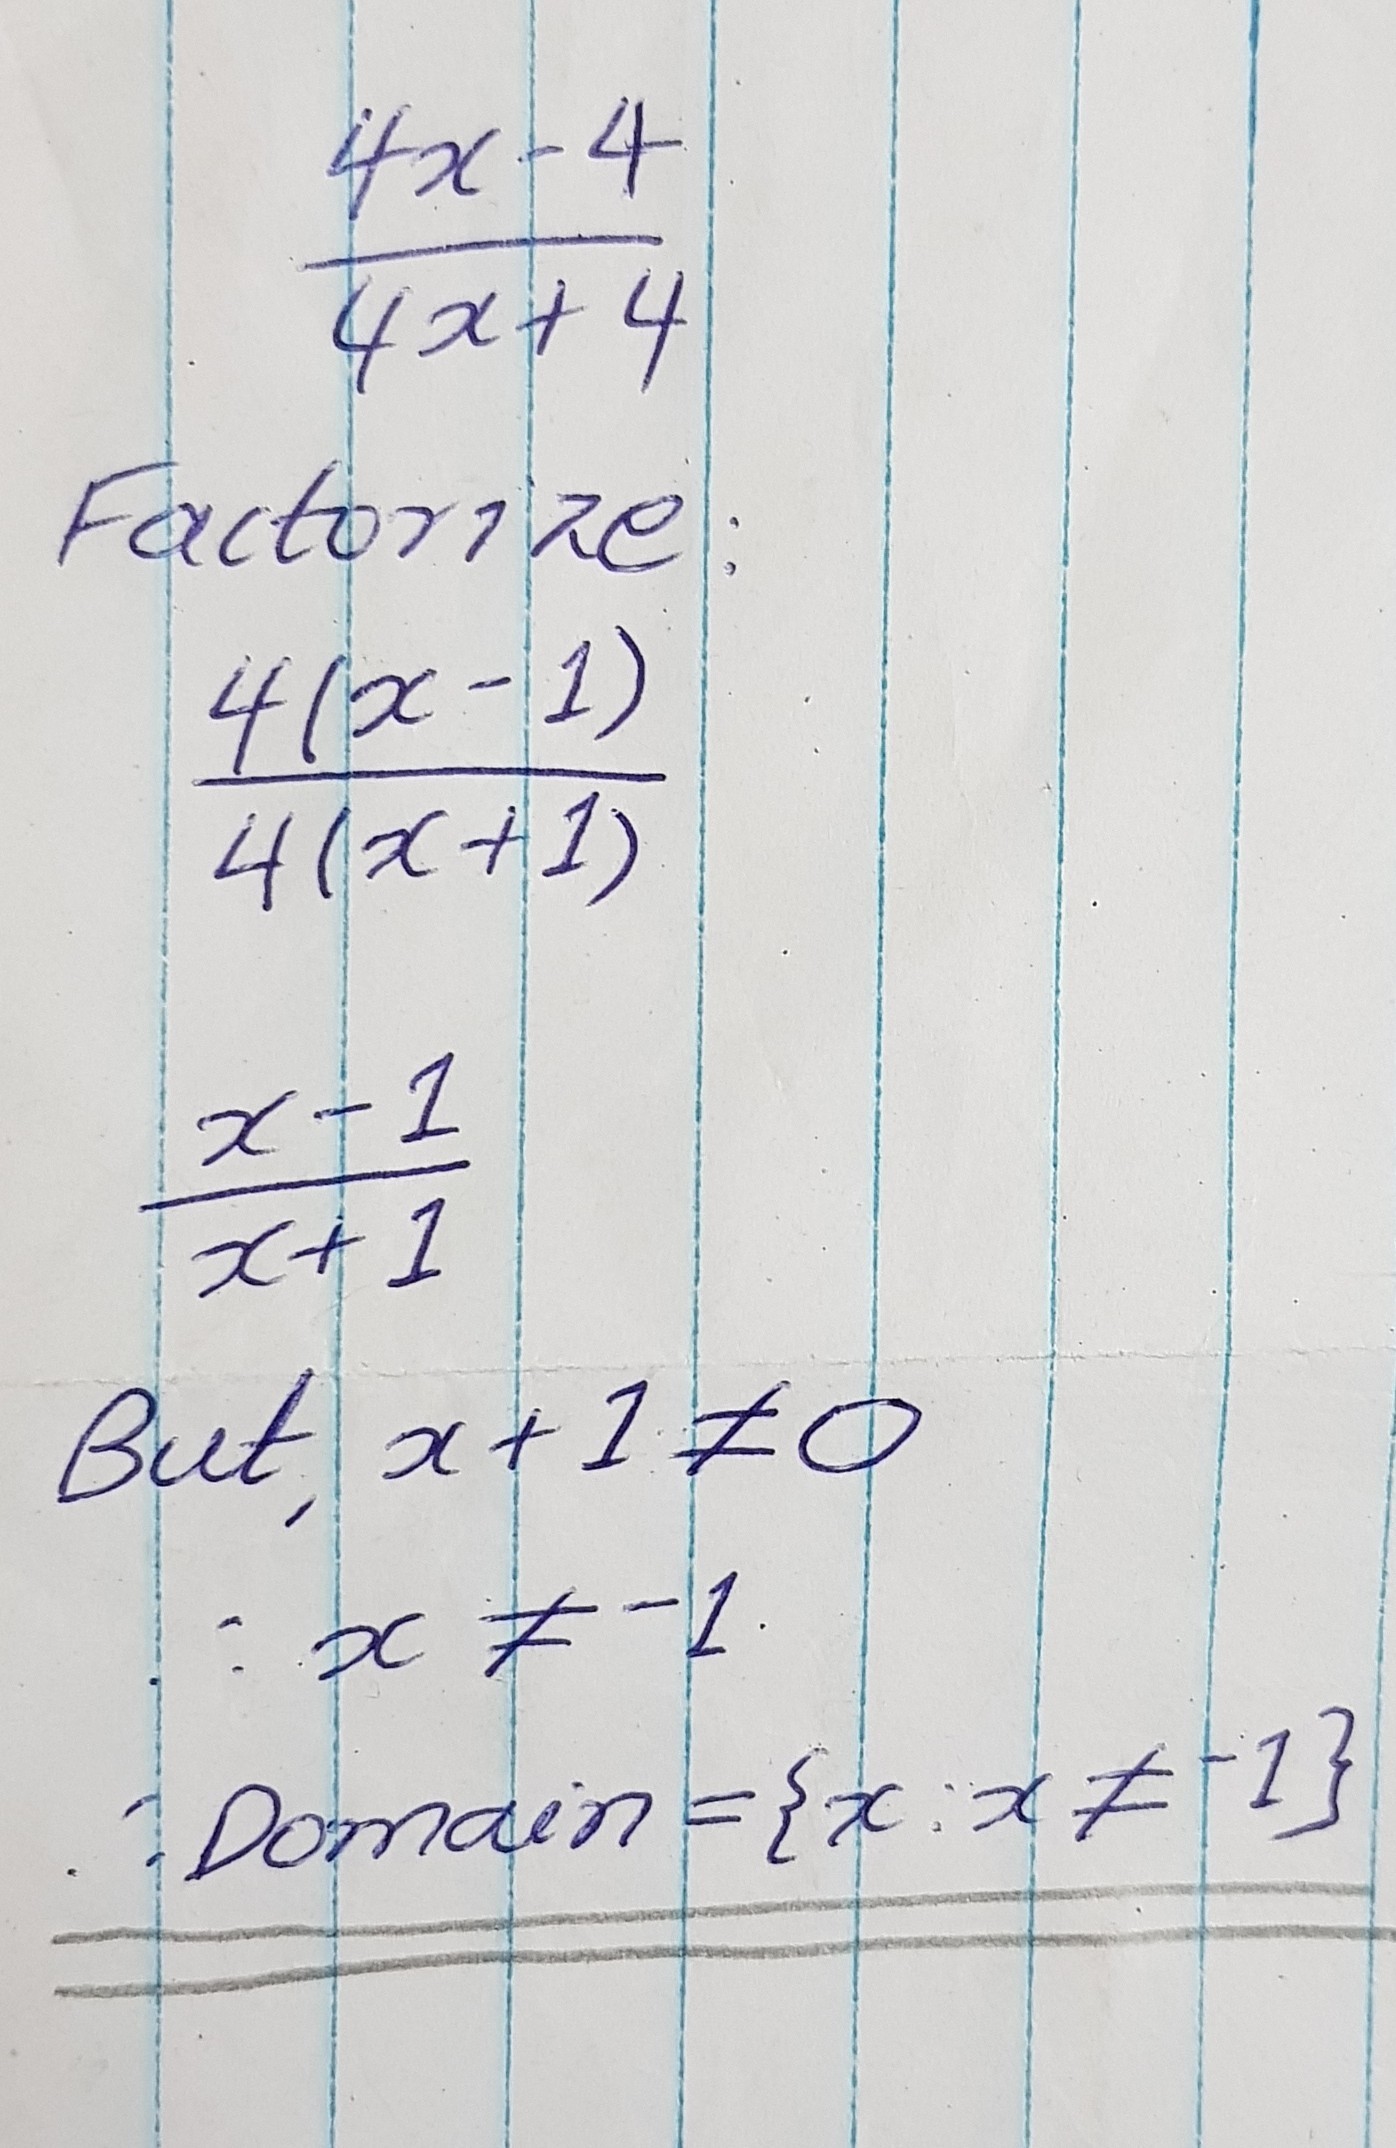 4x - 4
4x + 4
Factorize:
4(x - 1)
4(x + 1)
x - 1
x + 1
But, x + 1 ≠ 0
∴ x ≠ -1.
∴ Domain = {x : x ≠ -1}